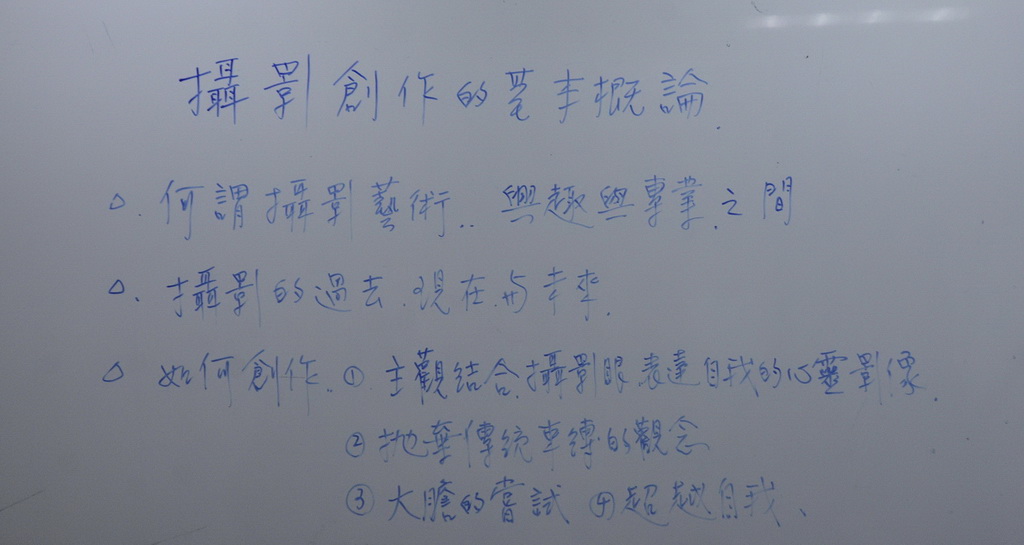 攝影創作的基本概論
△. 何謂攝影藝術.. 興趣與專業之間
△. 攝影的過去.現在.与未來.
△ 如何創作. ① 主觀結合攝影眼.表達自我的心靈影像.
② 拋棄傳統束縛的觀念
③ 大膽的嘗試 ④超越自我、